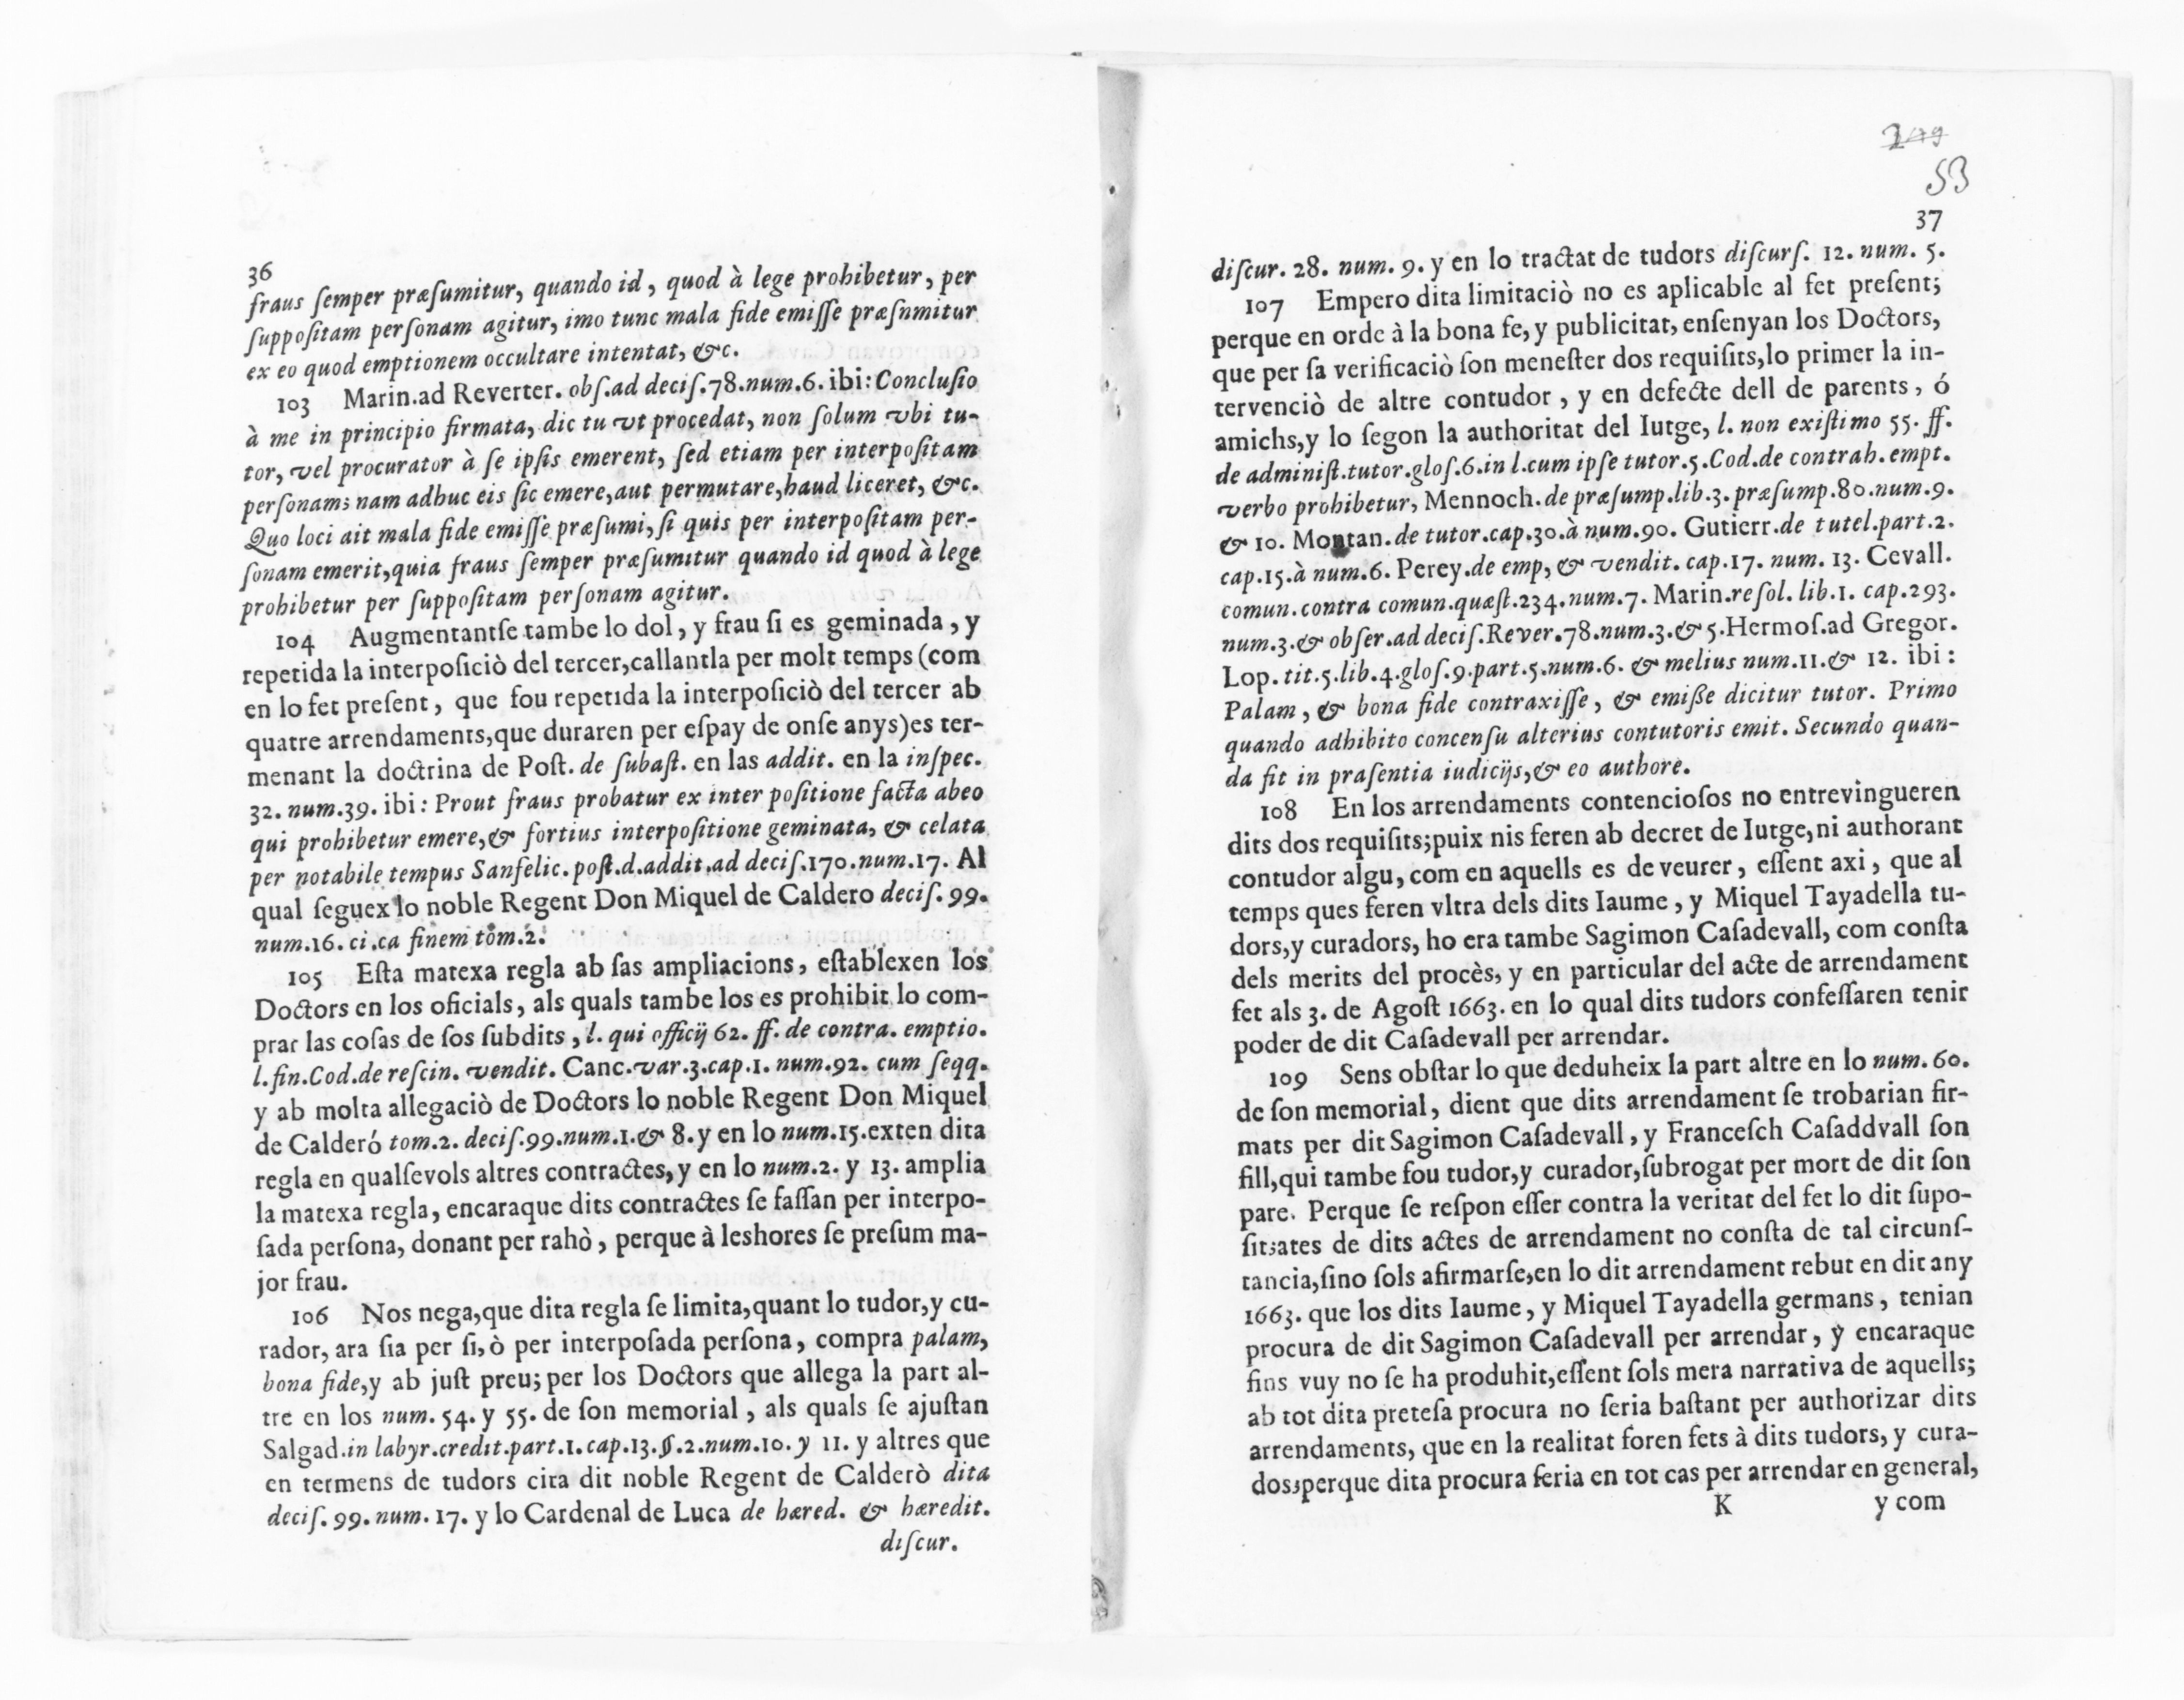 36
fraus ſemper præſumitur, quando id, quod à lege prohibetur, per
ſuppoſitam perſonam agitur, imo tunc mala fide emiſſe præſnmitur
ex eo quod emptionem occultare intentat, &c.
103 Marin.ad Reverter. obſ.ad deciſ.78.num.6. ibi: Concluſio
à me in principio firmata, dic tu vt procedat, non ſolum vbi tu-
tor, vel procurator à ſe ipſis emerent, ſed etiam per interpoſitam
perſonam; nam adhuc eis ſic emere,aut permutare,haud liceret, &c.
Quo loci ait mala fide emiſſe præſumi, ſi quis per interpoſitam per-
ſonam emerit,quia fraus ſemper præſumitur quando id quod à lege
prohibetur per ſuppoſitam perſonam agitur.
104 Augmentantſe tambe lo dol, y frau ſi es geminada, y
repetida la interpoſiciò del tercer,callantla per molt temps (com
en lo fet preſent, que fou repetida la interpoſiciò del tercer ab
quatre arrendaments,que duraren per eſpay de onſe anys)es ter-
menant la doctrina de Poſt. de ſubaſt. en las addit. en la inſpec.
32. num.39. ibi: Prout fraus probatur ex inter poſitione facta abeo
qui prohibetur emere,& fortius interpoſitione geminata, & celata
per notabile tempus Sanfelic. poſt.d.addit.ad deciſ.170.num.17. Al
qual ſeguex lo noble Regent Don Miquel de Caldero deciſ. 99.
num.16. ci.ca finem tom.2.
105 Eſta matexa regla ab ſas ampliacions, eſtablexen los
Doctors en los oficials, als quals tambe los es prohibit lo com-
prar las coſas de ſos ſubdits, l. qui officij 62. ff. de contra. emptio.
l.fin.Cod.de reſcin. vendit. Canc.var.3.cap.1. num.92. cum ſeqq.
y ab molta allegaciò de Doctors lo noble Regent Don Miquel
de Calderó tom.2. deciſ.99.num.1.& 8.y en lo num.15.exten dita
regla en qualſevols altres contractes, y en lo num.2. y 13. amplia
la matexa regla, encaraque dits contractes ſe faſſan per interpo-
ſada perſona, donant per rahò, perque à leshores ſe preſum ma-
jor frau.
106 Nos nega,que dita regla ſe limita,quant lo tudor,y cu-
rador, ara ſia per ſi, ò per interpoſada perſona, compra palam,
bona fide,y ab juſt preu; per los Doctors que allega la part al-
tre en los num. 54. y 55. de ſon memorial, als quals ſe ajuſtan
Salgad.in labyr.credit.part.1.cap.13.§.2.num.10. y 11. y altres que
en termens de tudors cita dit noble Regent de Calderò dita
deciſ. 99. num. 17. y lo Cardenal de Luca de hæred. & hæredit.
diſcur.
53
37
diſcur. 28. num. 9. y en lo tractat de tudors diſcurſ. 12. num. 5.
107 Empero dita limitaciò no es aplicable al fet preſent;
perque en orde à la bona fe, y publicitat, enſenyan los Doctors,
que per ſa verificaciò ſon meneſter dos requiſits,lo primer la in-
tervenciò de altre contudor, y en defecte dell de parents, ó
amichs,y lo ſegon la authoritat del Iutge, l. non exiſtimo 55. ff.
de adminiſt.tutor.gloſ.6.in l.cum ipſe tutor.5.Cod.de contrah.empt.
verbo prohibetur, Mennoch.de præſump.lib.3.præſump.80.num.9.
& 10. Montan.de tutor.cap.30.à num.90. Gutierr.de tutel.part.2.
cap.15.à num.6. Perey.de emp, & vendit. cap.17. num. 13. Cevall.
comun.contra comun.quæſt.234.num.7. Marin.reſol. lib.1. cap.293.
num.3.& obſer.ad deciſ.Rever.78.num.3.& 5.Hermoſ.ad Gregor.
Lop. tit.5.lib.4.gloſ.9.part.5.num.6. & melius num.11.& 12. ibi:
Palam, & bona fide contraxiſſe, & emiße dicitur tutor. Primo
quando adhibito concenſu alterius contutoris emit. Secundo quan-
da fit in praſentia iudicijs,& eo authore.
108 En los arrendaments contencioſos no entrevingueren
dits dos requiſits;puix nis feren ab decret de Iutge,ni authorant
contudor algu, com en aquells es de veurer, eſſent axi, que al
temps ques feren vltra dels dits Iaume, y Miquel Tayadella tu-
dors,y curadors, ho era tambe Sagimon Caſadevall, com conſta
dels merits del procès, y en particular del acte de arrendament
fet als 3. de Agoſt 1663. en lo qual dits tudors confeſſaren tenir
poder de dit Caſadevall per arrendar.
109 Sens obſtar lo que deduheix la part altre en lo num. 60.
de ſon memorial, dient que dits arrendament ſe trobarian fir-
mats per dit Sagimon Caſadevall, y Franceſch Caſaddvall ſon
fill,qui tambe fou tudor,y curador,ſubrogat per mort de dit ſon
pare. Perque ſe reſpon eſſer contra la veritat del fet lo dit ſupo-
ſit;ates de dits actes de arrendament no conſta de tal circunſ-
tancia,ſino ſols afirmarſe,en lo dit arrendament rebut en dit any
1663. que los dits Iaume, y Miquel Tayadella germans, tenian
procura de dit Sagimon Caſadevall per arrendar, y encaraque
fins vuy no ſe ha produhit,eſſent ſols mera narrativa de aquells;
ab tot dita preteſa procura no ſeria baſtant per authorizar dits
arrendaments, que en la realitat foren fets à dits tudors, y cura-
dos;perque dita procura ſeria en tot cas per arrendar en general,
K y com